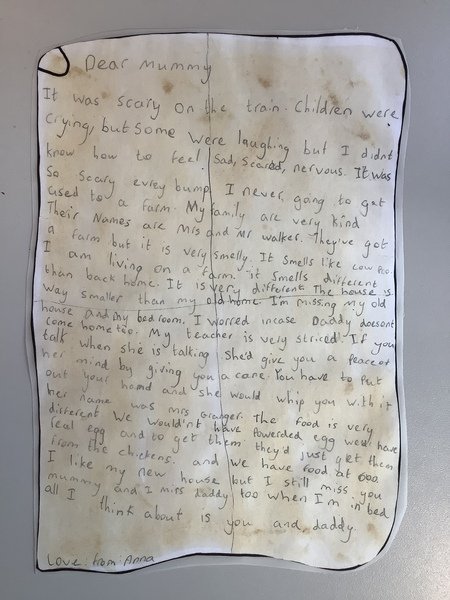 Dear Mummy
It was scary on the train. Children were
crying, but some were laughing but I didnt
know how to feel sad, scared, nervous. It was
so scary evrey bump I never going to get
used to a farm. My family are very kind
Their Names are Mrs and Mr walker. They've got
a farm but it is very smelly. It smells like cow poo
I am living on a farm. it smells different
than back home. It is very different The house is
way smaller than my old home. I'm missing my old
house and my bedroom. I worred incase Daddy doesent
come home too. My teacher is very striced If you
talk when she is talking She'd give you a peace of
her mind by giving you a cane. You have to put
out your hand and she would whip you with it
her name was mrs Granger. The food is very
different We wouldn't have powerded egg we'd have
real egg and to get them they'd just get them
from the chickens. and we have food at 600
I like my new house but I still miss you
mummy and I miss daddy too when I'm in bed
all I think about is you and daddy.
Love: from: Anna